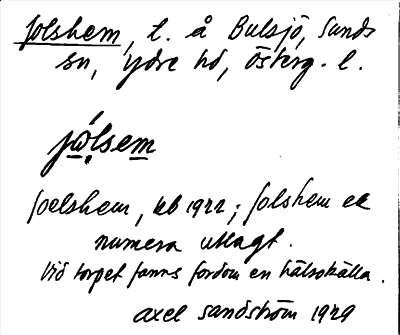 Jolshem, t. å Bulsjö, Sunds
sn, Ydre hd, Österg. l.
jώlsem
Joelshem, kb 1922; Jolshem ek
numera utlagt.
Vid torpet fanns fordom en hälsokälla.
Axel Sandström 1929